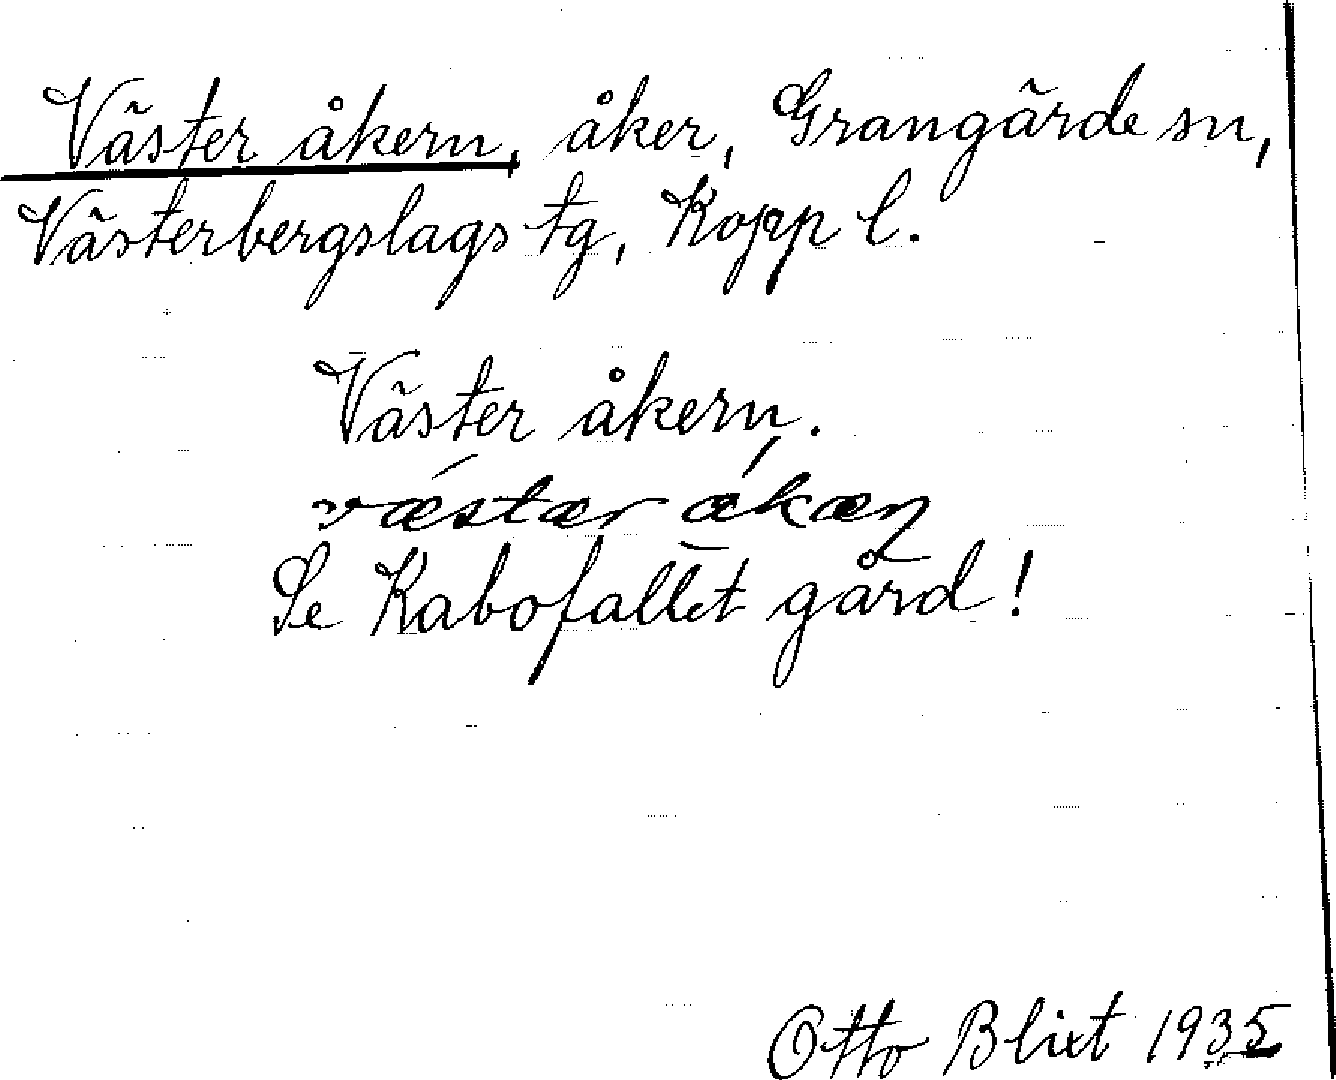 Väster åkern, åker, Grangärde sn,
Västerbergslags tg, Kopp l.
Väster åkern.
væstær
Se Kabofallet gård!
Otto Blixt 1935